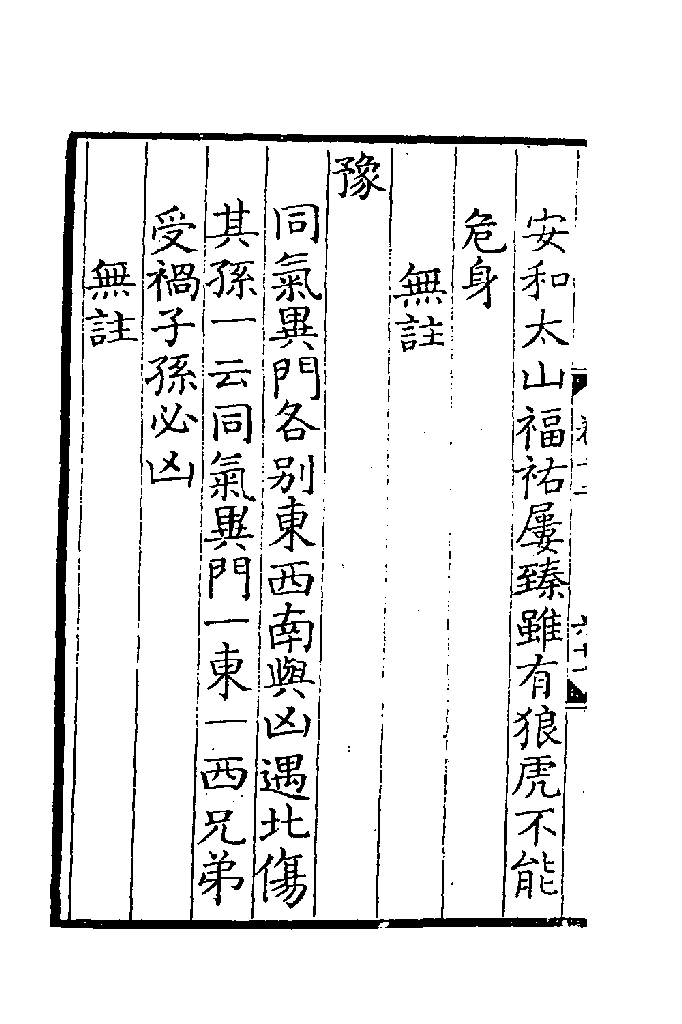 安和太山福祐屢臻雖有狼虎不能
危身
無註
豫
同氣異門各别東西南與凶遇北傷
其孫一云同氣異門一東一西兄弟
受禍子孫必凶
無註